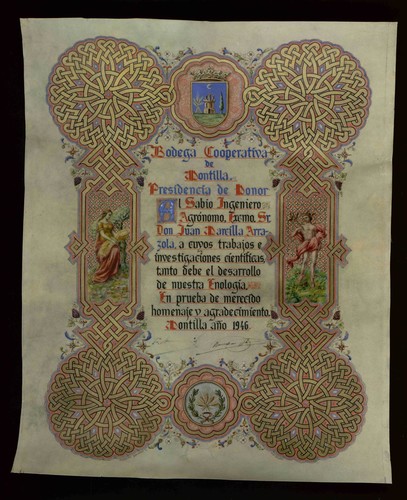 Bodega Cooperativa
de
Montilla.
Presidencia de Honor
Al Sabio Ingeniero
Agrónomo, Excmo. Sr.
Don Juan Marcilla Arra-
zola, a cuyos trabajos e
investigaciones científicas,
tanto debe el desarrollo
de nuestra Enología.
En prueba de merecido
homenaje y agradecimiento.
Montilla año 1946.